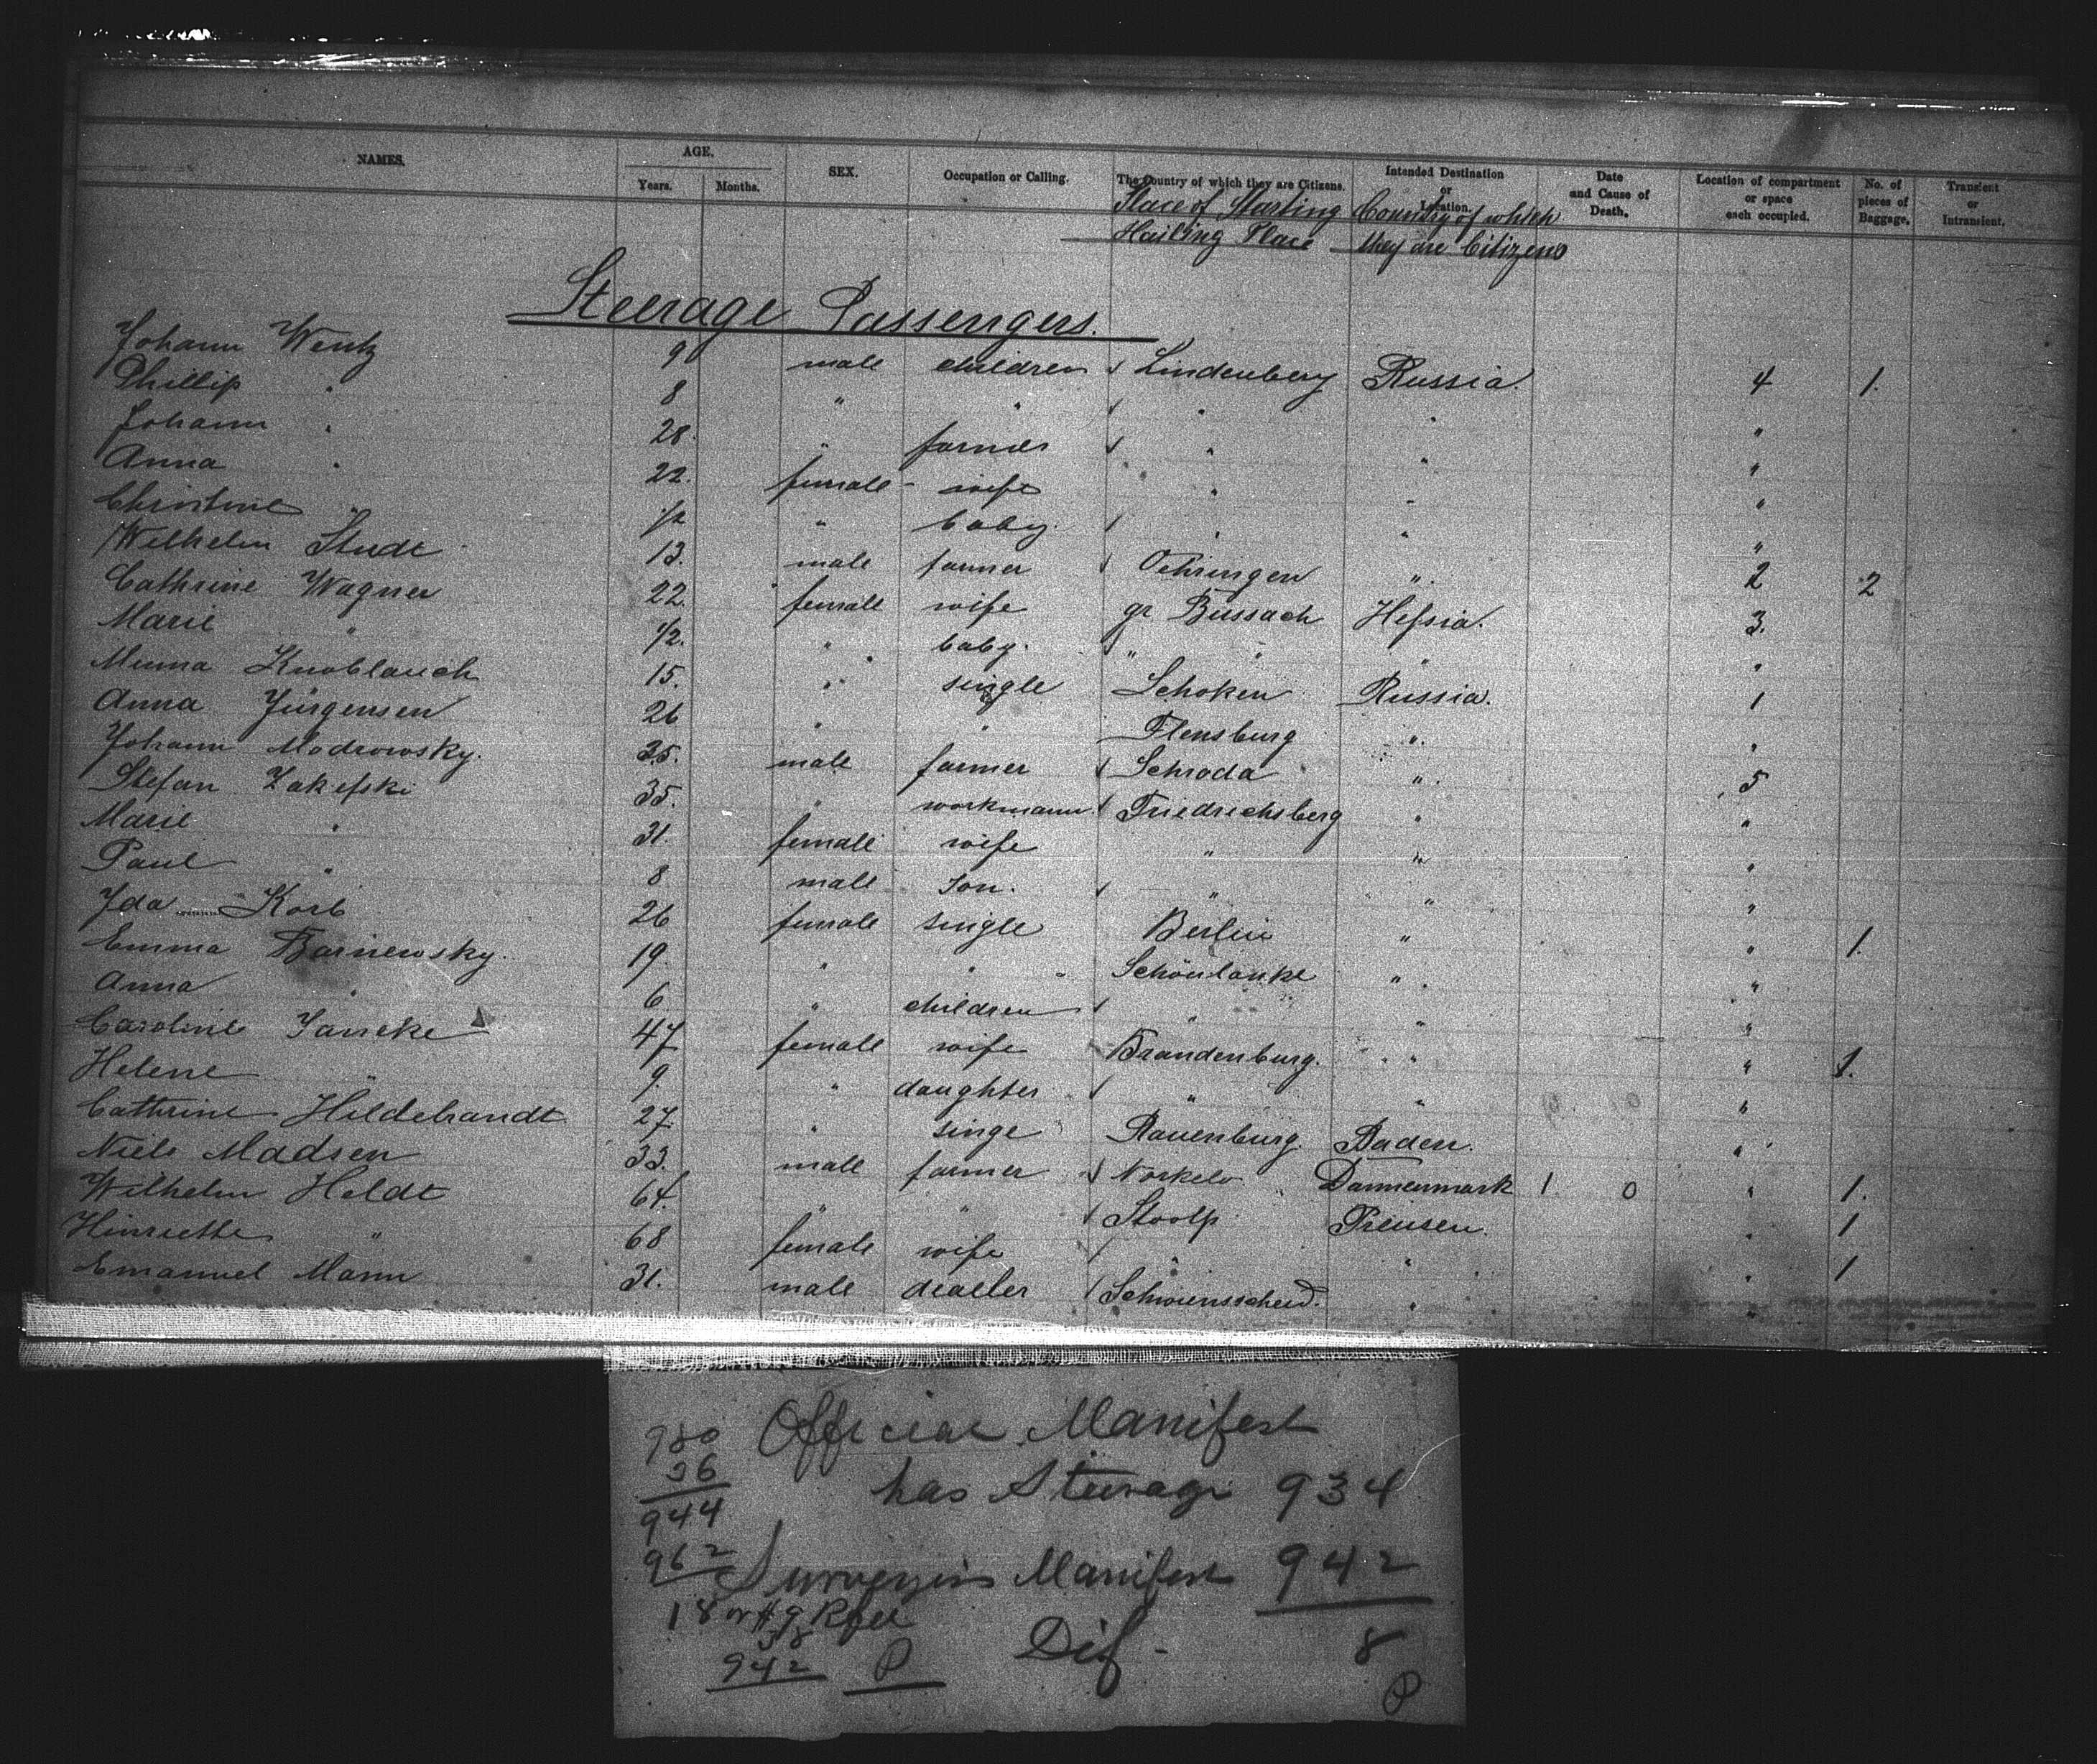 NAMES. AGE. SEX. Occupation or Calling. The Country of which they are Citizens. Intended Destination or Location. Date and Cause of Death. Location of compartment or space each occupied. No. of pieces of Baggage. Transient or Intransient.
Years. Months.
Place of Starting Country of which
Hailing Place they are Citizens
Steerage Passengers.
Johann Wentz 9 male children Lindenberg Russia. 4 1.
Phillip " 8 " " " " "
Johann " 28. " farmer " " "
Anna " 22. female wife " " "
Christine " 1/2 " baby. " " "
Wilhelm Studt 13. male farmer Oehringen " 2 2
Cathrine Wagner 22. female wife gr. Bussach Hessia. 3.
Marie " 1/2. " baby. " " " "
Minna Knoblauch 15. " single Schoken Russia. 1
Anna Jürgensen 26 " " Flensburg " "
Johann Modrowsky. 35. male farmer Schroda " 5
Stefan Zakefski 35. " workmann Friedrichsberg " "
Marie " 31. female wife " " "
Paul " 8 male son. " " "
Ida Korb 26 female single Berlin " " 1.
Emma Barnewsky. 19. " " Schönlanke " "
Anna " 6 " children " " "
Caroline Jancke 47 female wife Brandenburg. " " 1.
Helene " 9. " daughter " " "
Cathrine Hildebrandt 27. " singe Rauenburg. Baden. "
Niels Madsen 33. male farmer Norkelo Dannemmark 1. 0 " 1.
Wilhelm Heldt 64. " " Stoolp Preusen. " 1
Hinriette " 68 female wife " " " 1
Emanuel Mann 31. male dealler Schwiensscheid. " "
980 Official Manifest
36 has Steerage 934
944
962 Surveyors Manifest 942
18 or # 9 Roll
38 Dif - 8
942 P P